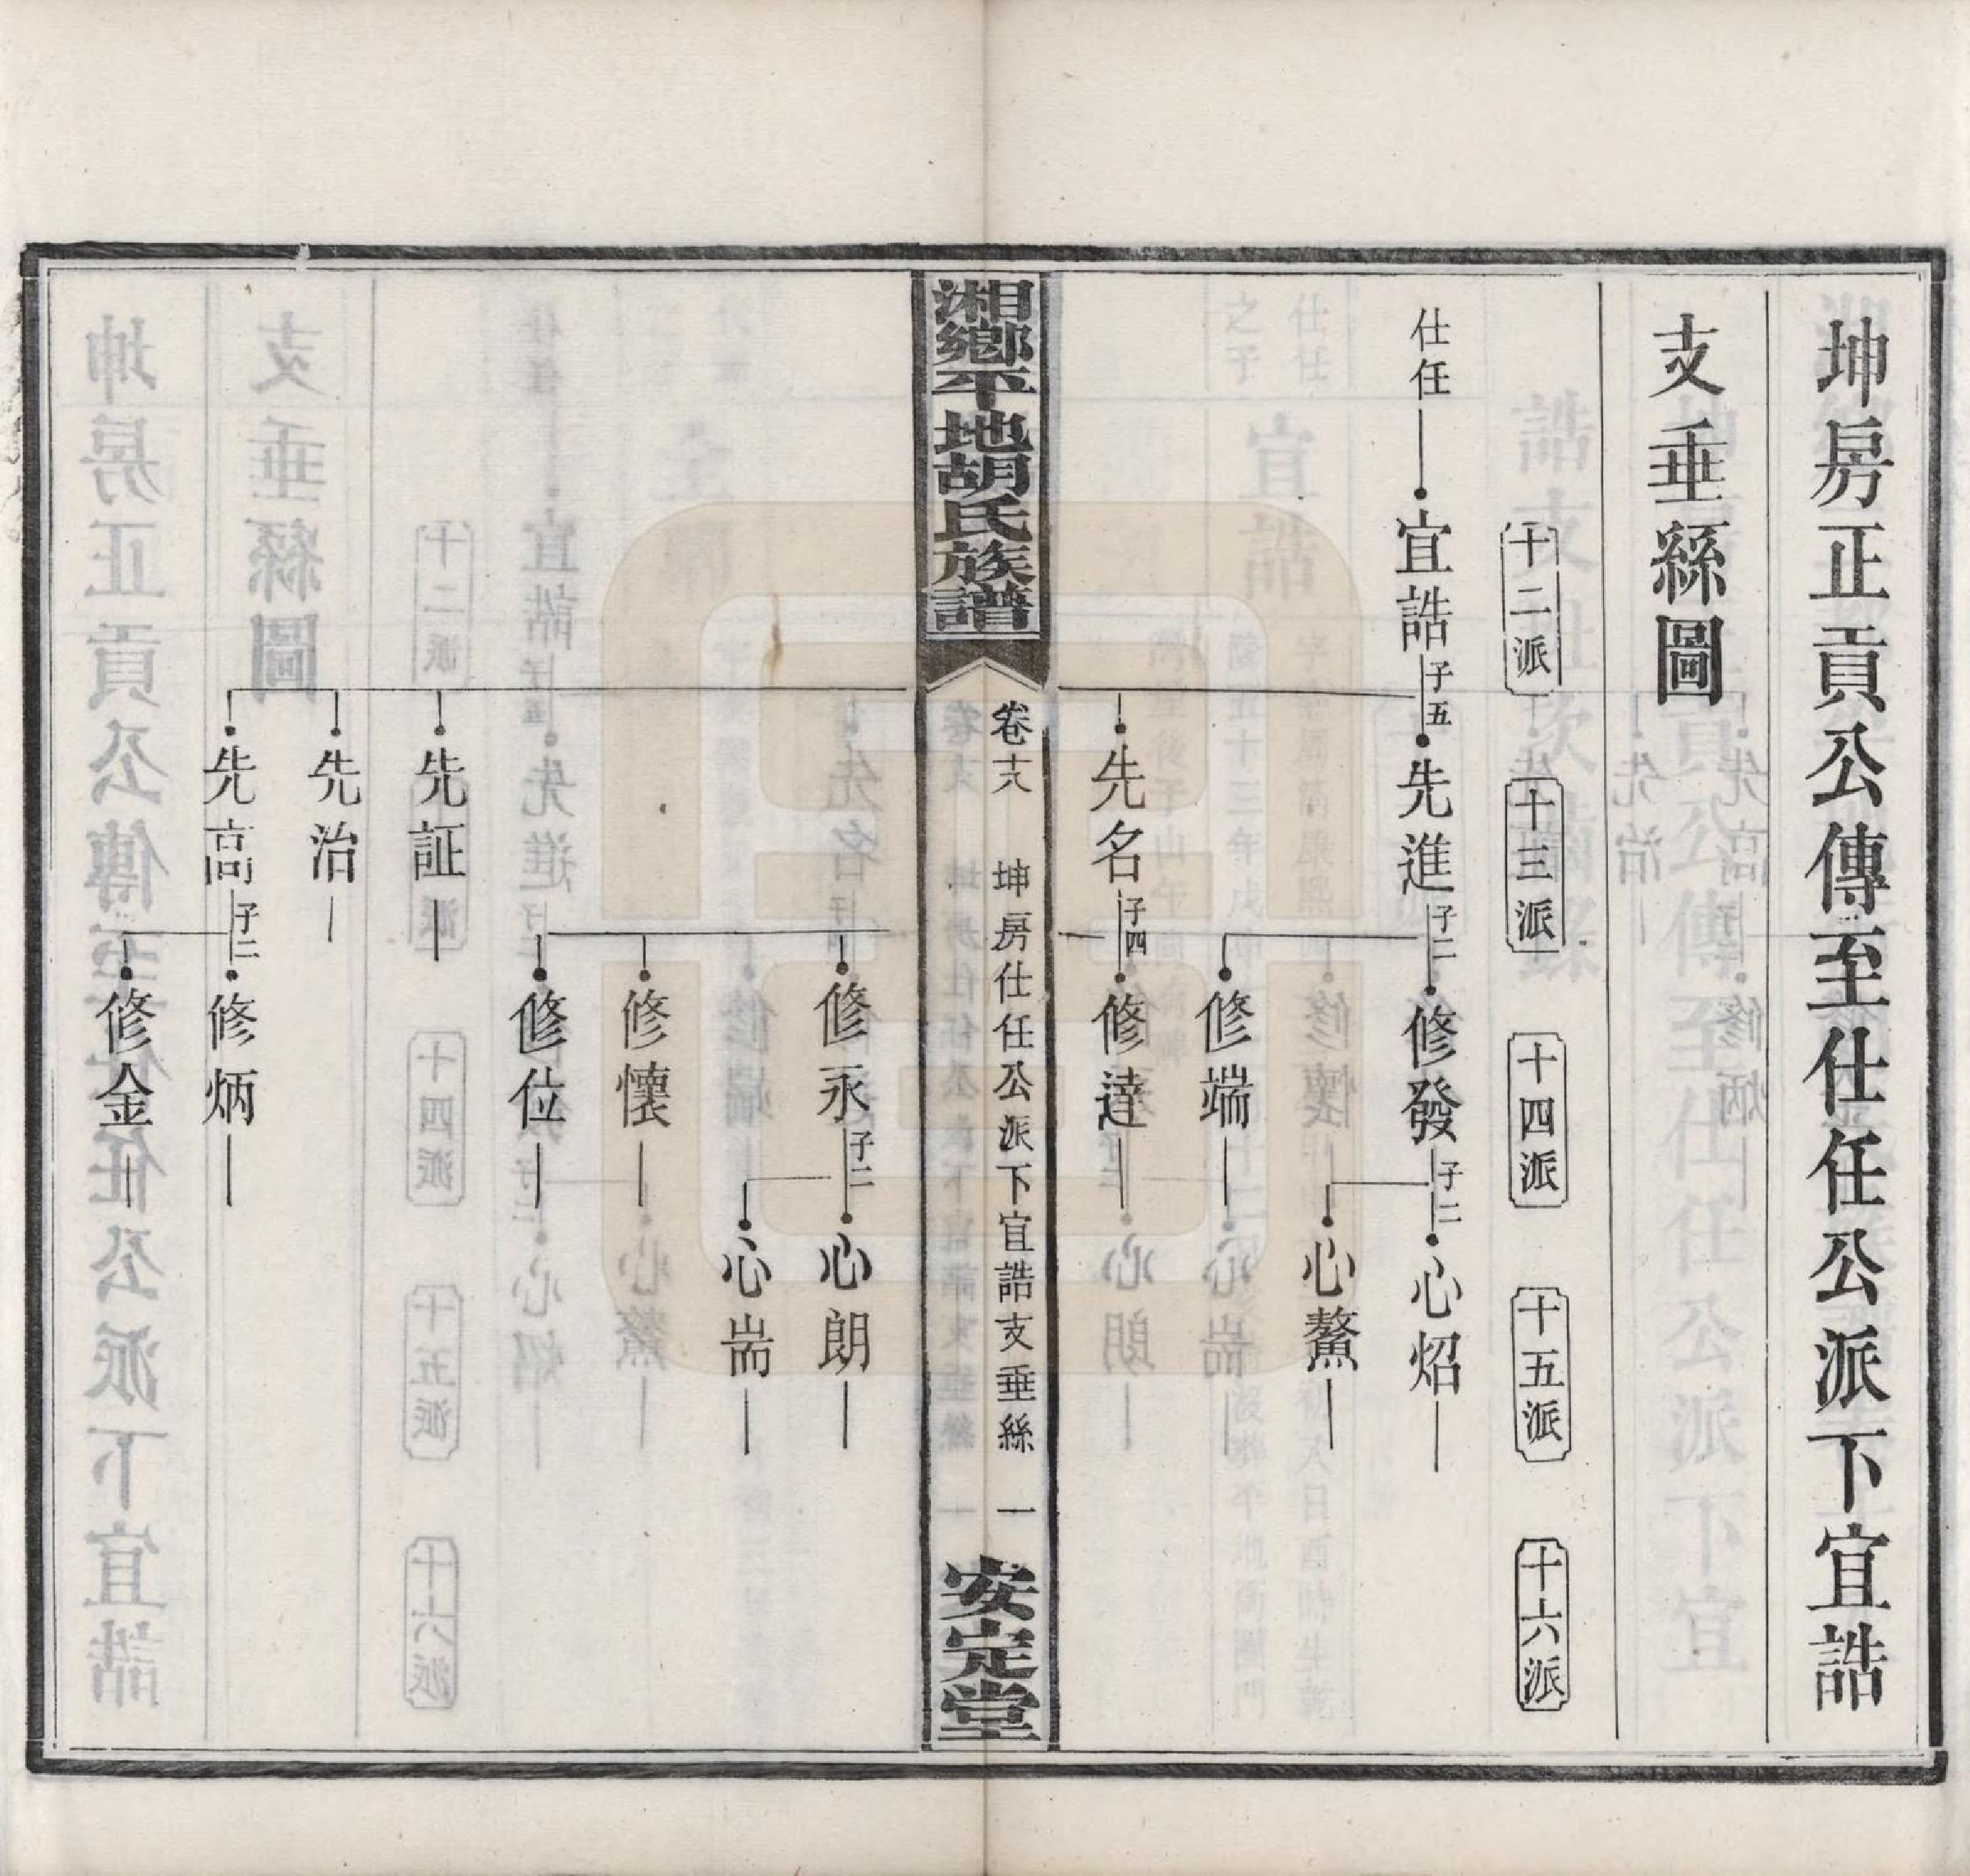 坤房正貢公傳至仕任公派下宜誥
支垂絲圖
十二派
十三派
十四派
十五派
十六派
仕任
宜誥
子五
先進
子二
修發
子二
心炤
心鰲
修端
先名
子四
修達
湘鄉平地胡氏族譜
卷十六
坤房仕任公派下宜誥支垂絲
一
安定堂
修永
子二
心朗
心耑
修懷
修位
先証
先治
先高
子二
修炳
修金